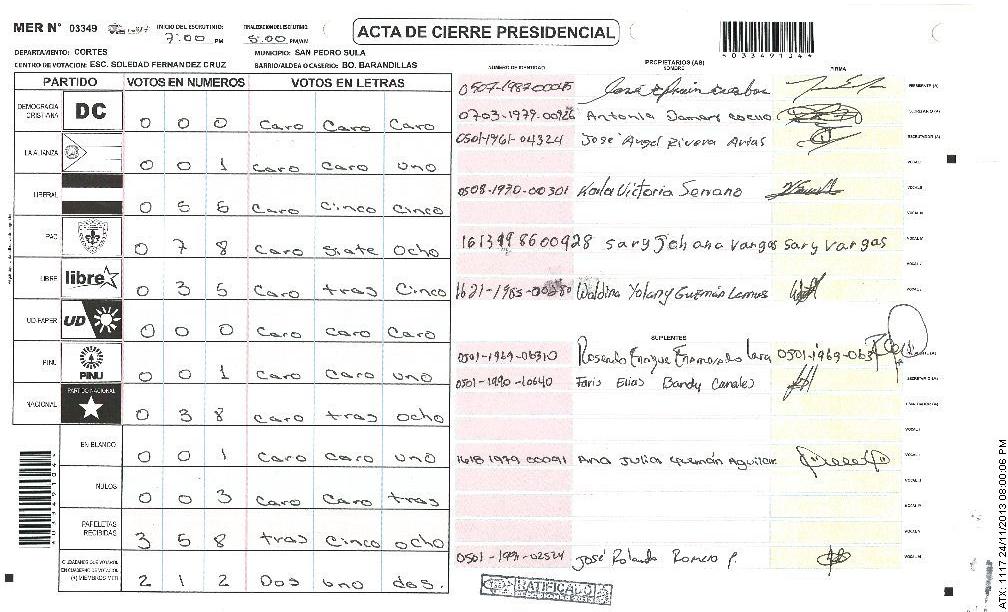 MER N° 03349 INICIO DEL ESCRUTINIO: 7:00 PM FINALIZACION DEL ESCRUTINIO: 8:00 PM/AM
ACTA DE CIERRE PRESIDENCIAL
DEPARTAMENTO: CORTES MUNICIPIO: SAN PEDRO SULA
CENTRO DE VOTACION: ESC. SOLEDAD FERNANDEZ CRUZ BARRIO/ALDEA O CASERIO: BO. BARANDILLAS
PARTIDO VOTOS EN NUMEROS VOTOS EN LETRAS
DEMOCRACIA CRISTIANA DC 0 0 0 Caro Caro Caro
LA ALIANZA 0 0 1 Caro Caro uno
LIBERAL 0 5 5 Caro Cinco Cinco
PAC 0 7 8 Caro Siate Ocho
LIBRE libre 0 3 5 Caro tras Cinco
UD-FAPER UD 0 0 0 Caro Caro Caro
PINU PINU 0 0 1 Caro Caro uno
NACIONAL PARTIDO NACIONAL 0 3 8 Caro tras ocho
EN BLANCO 0 0 1 Caro Caro uno
NULOS 0 0 3 Caro Caro tras
PAPELETAS RECIBIDAS 3 5 8 tras Cinco ocho
CIUDADANOS QUE VOTARON EN CUADERNO DE VOTACION (+) MIEMBROS MER 2 1 2 Dos uno dos.
NUMERO DE IDENTIDAD PROPIETARIOS (AS) NOMBRE FIRMA
PRESIDENTE (A)
0703-1979-00926 Antonia Damary SECRETARIO (A)
0501-1961-04324 José Angel Rivera Arias ESCRUTADOR (A)
VOCAL I
0508-1970-00301 Karla Victoria Serrano VOCAL II
VOCAL III
16131998600928 Sary Johana Vargas Sary Vargas VOCAL IV
VOCAL V
1621-1985-00280 Waldina Yolany Guzmán Lemus
SUPLENTES
0501-1969-06310 Rosendo Enrique Enamorado Lara
0501-1990-10640 Faris Elias Bandy Canales SECRETARIO (A)
ESCRUTADOR (A)
VOCAL I
1618 1979 00091 Ana Julia Guzmán Aguilar
José Rolando Romero P.
RATIFICADO
4033491044
ATX: 1117 24/11/2013 08:00:06 PM